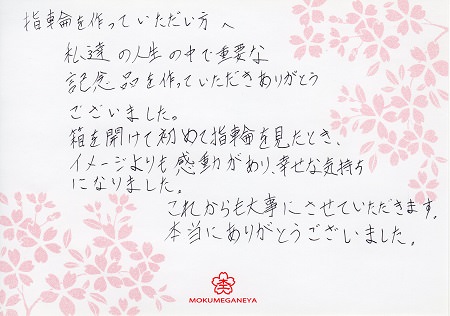 指輪を作っていただい方へ
私達の人生の中で重要な
記念品を作っていただきありがとう
ございました。
箱を開けて初めて指輪を見たとき、
イメージよりも感動があり、幸せな気持ち
になりました。
これからも大事にさせていただきます。
本当にありがとうございました。
MOKUMEGANEYA